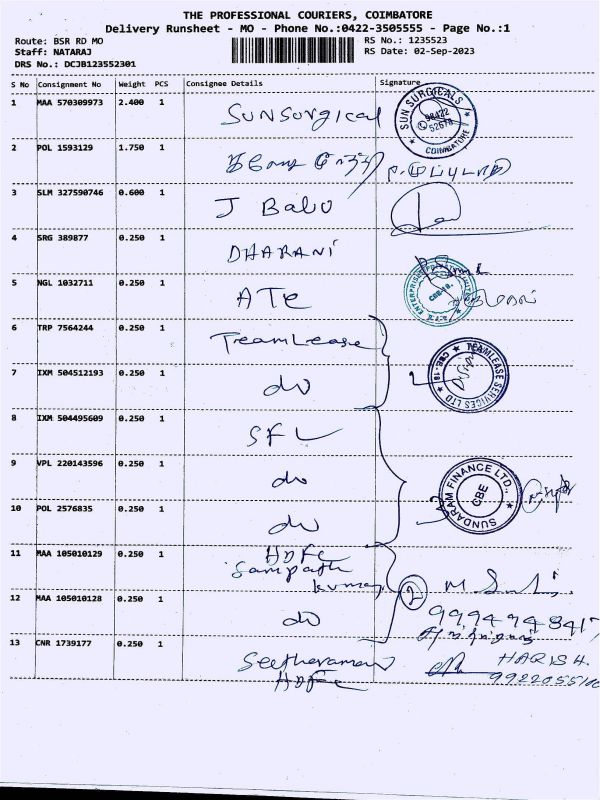 THE PROFESSIONAL COURIERS, COIMBATORE
Delivery Runsheet - MO - Phone No.:0422-3505555 - Page No.:1
Route: BSR RD MO
RS No.: 1235523
Staff: NATARAJ
RS Date: 02-Sep-2023
DRS No.: DCJB123552301
S No Consignment No Weight PCS Consignee Details Signature
1 MAA 570309973 2.400 1 SUNSURGICAL SUN SURGICALS COIMBATORE
2 POL 1593129 1.750 1
3 SLM 327590746 0.600 1 J Babu
4 SRG 389877 0.250 1 DHARANI
5 NGL 1032711 0.250 1 ATE
6 TRP 7564244 0.250 1 TeamLease
7 IXM 504512193 0.250 1 do TEAMLEASE SERVICES LTD CBE - 18
8 IXM 504495609 0.250 1 SFL
9 VPL 220143596 0.250 1 do
10 POL 2576835 0.250 1 do SUNDARAM FINANCE LTD., CBE
11 MAA 105010129 0.250 1 HDFC
Sampath
kumar
12 MAA 105010128 0.250 1 do 2 9994948417
13 CNR 1739177 0.250 1 Seetharaman HARISH.
HDFC